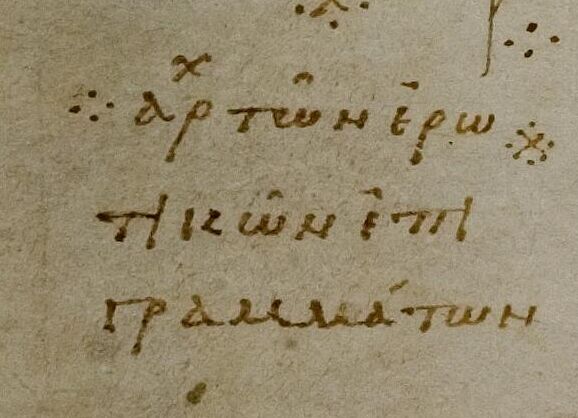 ἀρχ τῶν ἐρω
τικῶν ἐπι
γραμμάτων